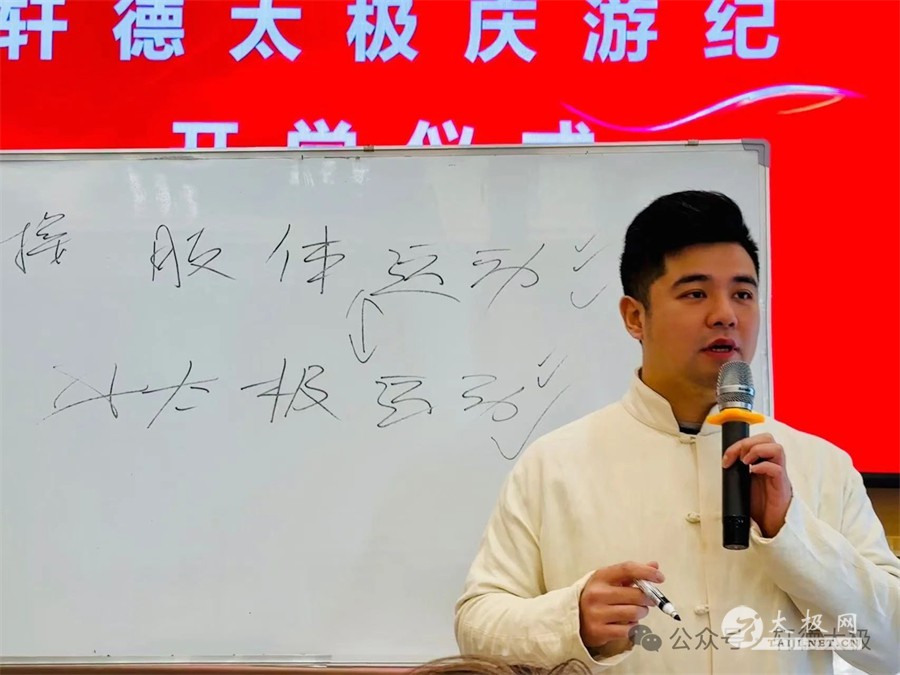 轩德太极庆游纪
开学仪式
肢体运动
太极运动
公众号 · 轩德太极
太极网
TAIJI.NET.CN